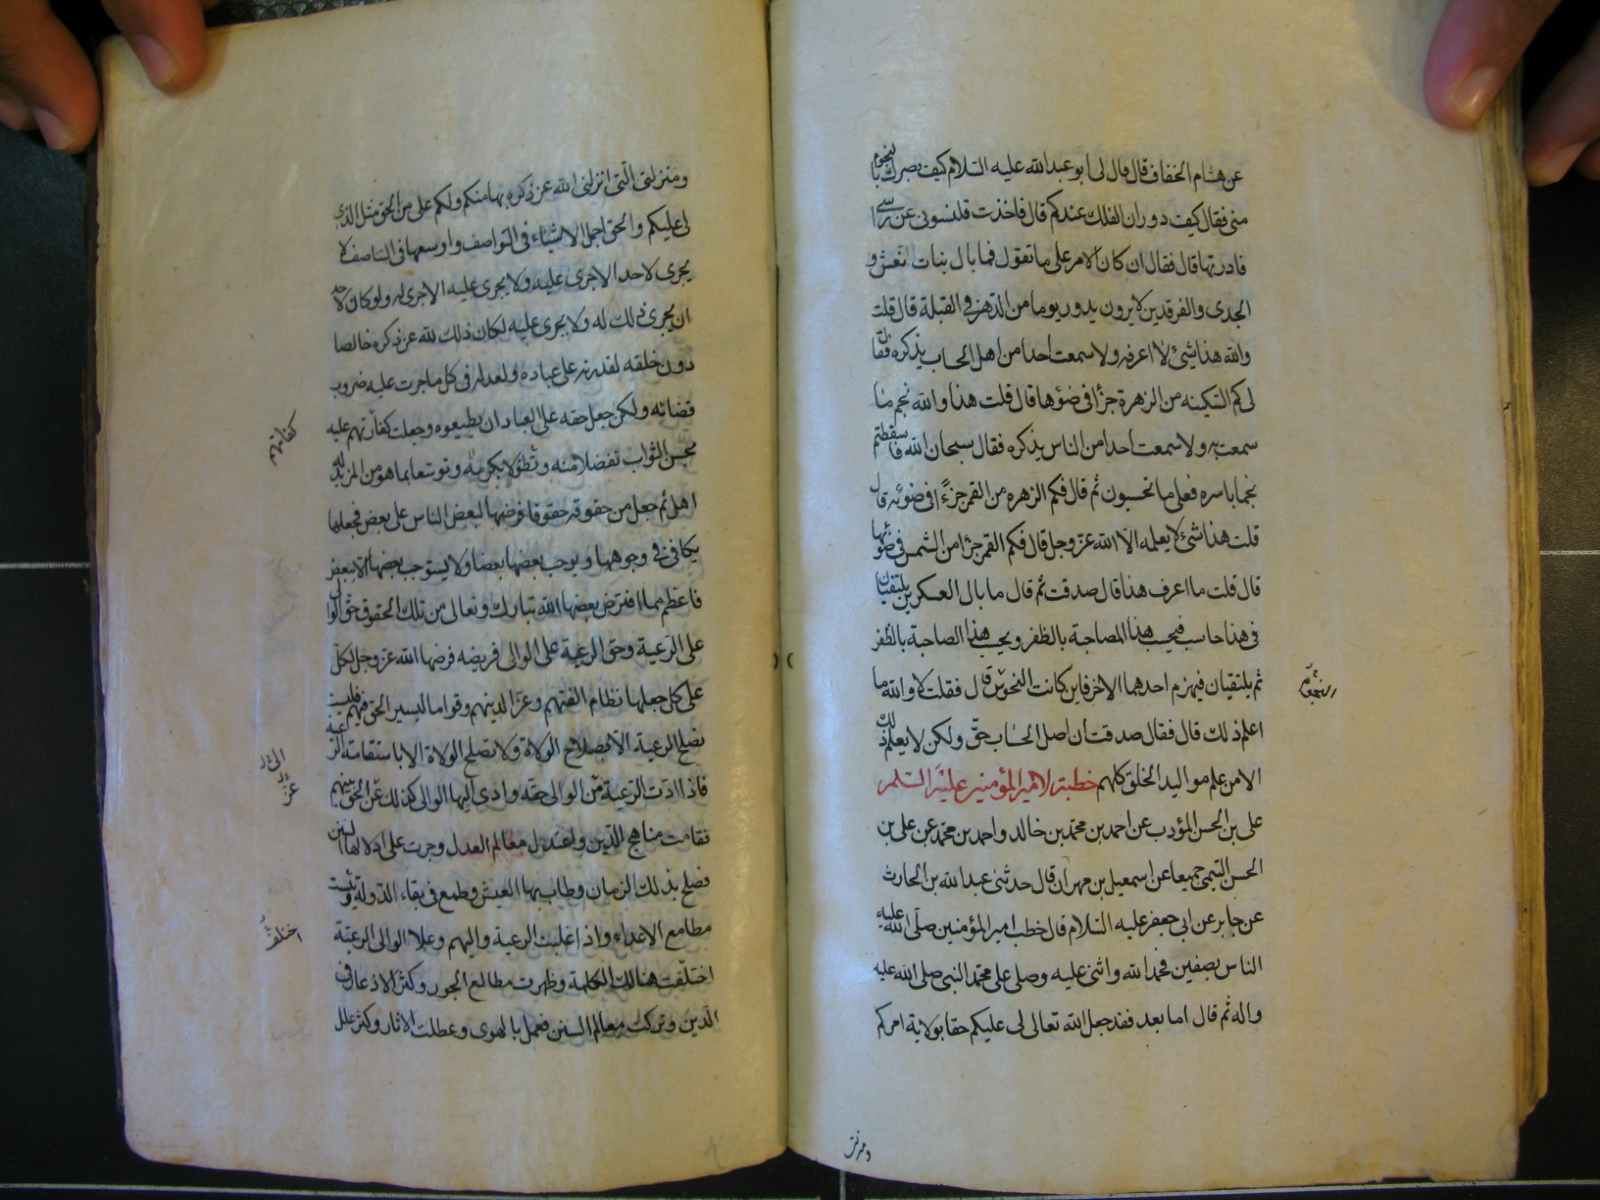 عن هشام الخفاف قال قال لى ابو عبد الله عليه السلام كيف بصرك بالنجوم
منى فقال كيف دوران الفلك عندكم قال فاخذت قلنسوتى عن راسى
فادرتها قال فقال ان كان الامر على ما تقول فما بال بنات نعش و
الجدى والفرقدين لا يرون يدور يوما من الدهر فى القبلة قال قلت
والله هذا شئ لا اعرفه ولا سمعت احدا من اهل الحساب يذكره فقال
لى كم السكينه من الزهرة جزءا فى ضوئها قال قلت هذا والله نجم ما
سمعت به ولا سمعت احدا من الناس يذكره فقال سبحان الله فاسقطتم
نجما باسره فعلى ما تحسبون ثم قال فكم الزهره من القمر جزءا فى ضوئه قال
قلت هذا شئ لا يعلمه الا الله عز وجل قال فكم القمر جزءا من الشمس فى ضوئها
قال قلت ما اعرف هذا قال صدقت ثم قال ما بال العسكرين يلتقيان
فى هذا حاسب فيحسب هذا لصاحبه بالظفر ويحسب هذا لصاحبه بالظفر
ثم يلتقيان فيهزم احدهما الاخر فاين كانت النحوس قال فقلت لا والله ما
اعلم ذلك قال فقال صدقت ان اصل الحساب حق ولكن لا يعلم ذلك
الا من علم مواليد الخلق كلهم خطبة لامير المؤمنين عليه السلم
على بن الحسن المؤدب عن احمد بن محمد بن خالد واحمد بن محمد عن على بن
الحسن التيمى جميعا عن اسمعيل بن مهران قال حدثنى عبد الله بن الحارث
عن جابر عن ابى جعفر عليه السلام قال خطب امير المؤمنين صلى الله عليه
الناس بصفين فحمد الله واثنى عليه وصلى على محمد النبى صلى الله عليه
واله ثم قال اما بعد فقد جعل الله تعالى لى عليكم حقا بولاية امركم
النجوم
ومنزلتى
ومنزلتى التى انزلنى الله عز ذكره بها منكم ولكم على من الحق مثل الذى
لى عليكم والحق اجمل الاشياء فى التواصف واوسعها فى التناصف لا
يجرى لاحد الا جرى عليه ولا يجرى عليه الا جرى له ولو كان لاحد
ان يجرى ذلك له ولا يجرى عليه لكان ذلك لله عز ذكره خالصا
دون خلقه لقدرته على عباده ولعدله فى كل ما جرت عليه ضروب
قضائه ولكن جعل حقه على العباد ان يطيعوه وجعلت كفارتهم عليه
بحسن الثواب تفضلا منه وتطولا بكرمه وتوسعا بما هو من المزيد له
اهل ثم جعل من حقوقه حقوقا فرضها لبعض الناس على بعض فجعلها
تكافئ فى وجوهها ويوجب بعضها بعضا ولا يستوجب بعضها الا ببعض
فاعظم مما افترض بعضها الله تبارك وتعالى من تلك الحقوق حق الوالى
على الرعية وحق الرعية على الوالى فريضه فرضها الله عز وجل لكل
على كل جعلها نظام الفتهم وعزا لدينهم وقواما ليسير الحق فيهم فليست
تصلح الرعية الا بصلاح الولاة ولا تصلح الولاة الا باستقامة الرعية
فاذا ادت الرعية من الوالى حقه وادى اليها الوالى كذلك عز الحق بينهم
فقامت مناهج الدين واعتدل معالم العدل وجرت على اذلالها السنن
وصلح بذلك الزمان وطاب بها العيش وطمع فى بقاء الدولة ويئست
مطامع الاعداء واذا غلبت الرعية واليهم وعلا الوالى الرعية
اختلفت هنالك الكلمة وظهرت مطالع الجور وكثر الادغال فى
الدين وتركت معالم السنن فعمل بالهوى وعطلت الاثار وكثر علل
كفارتهم
اختلف